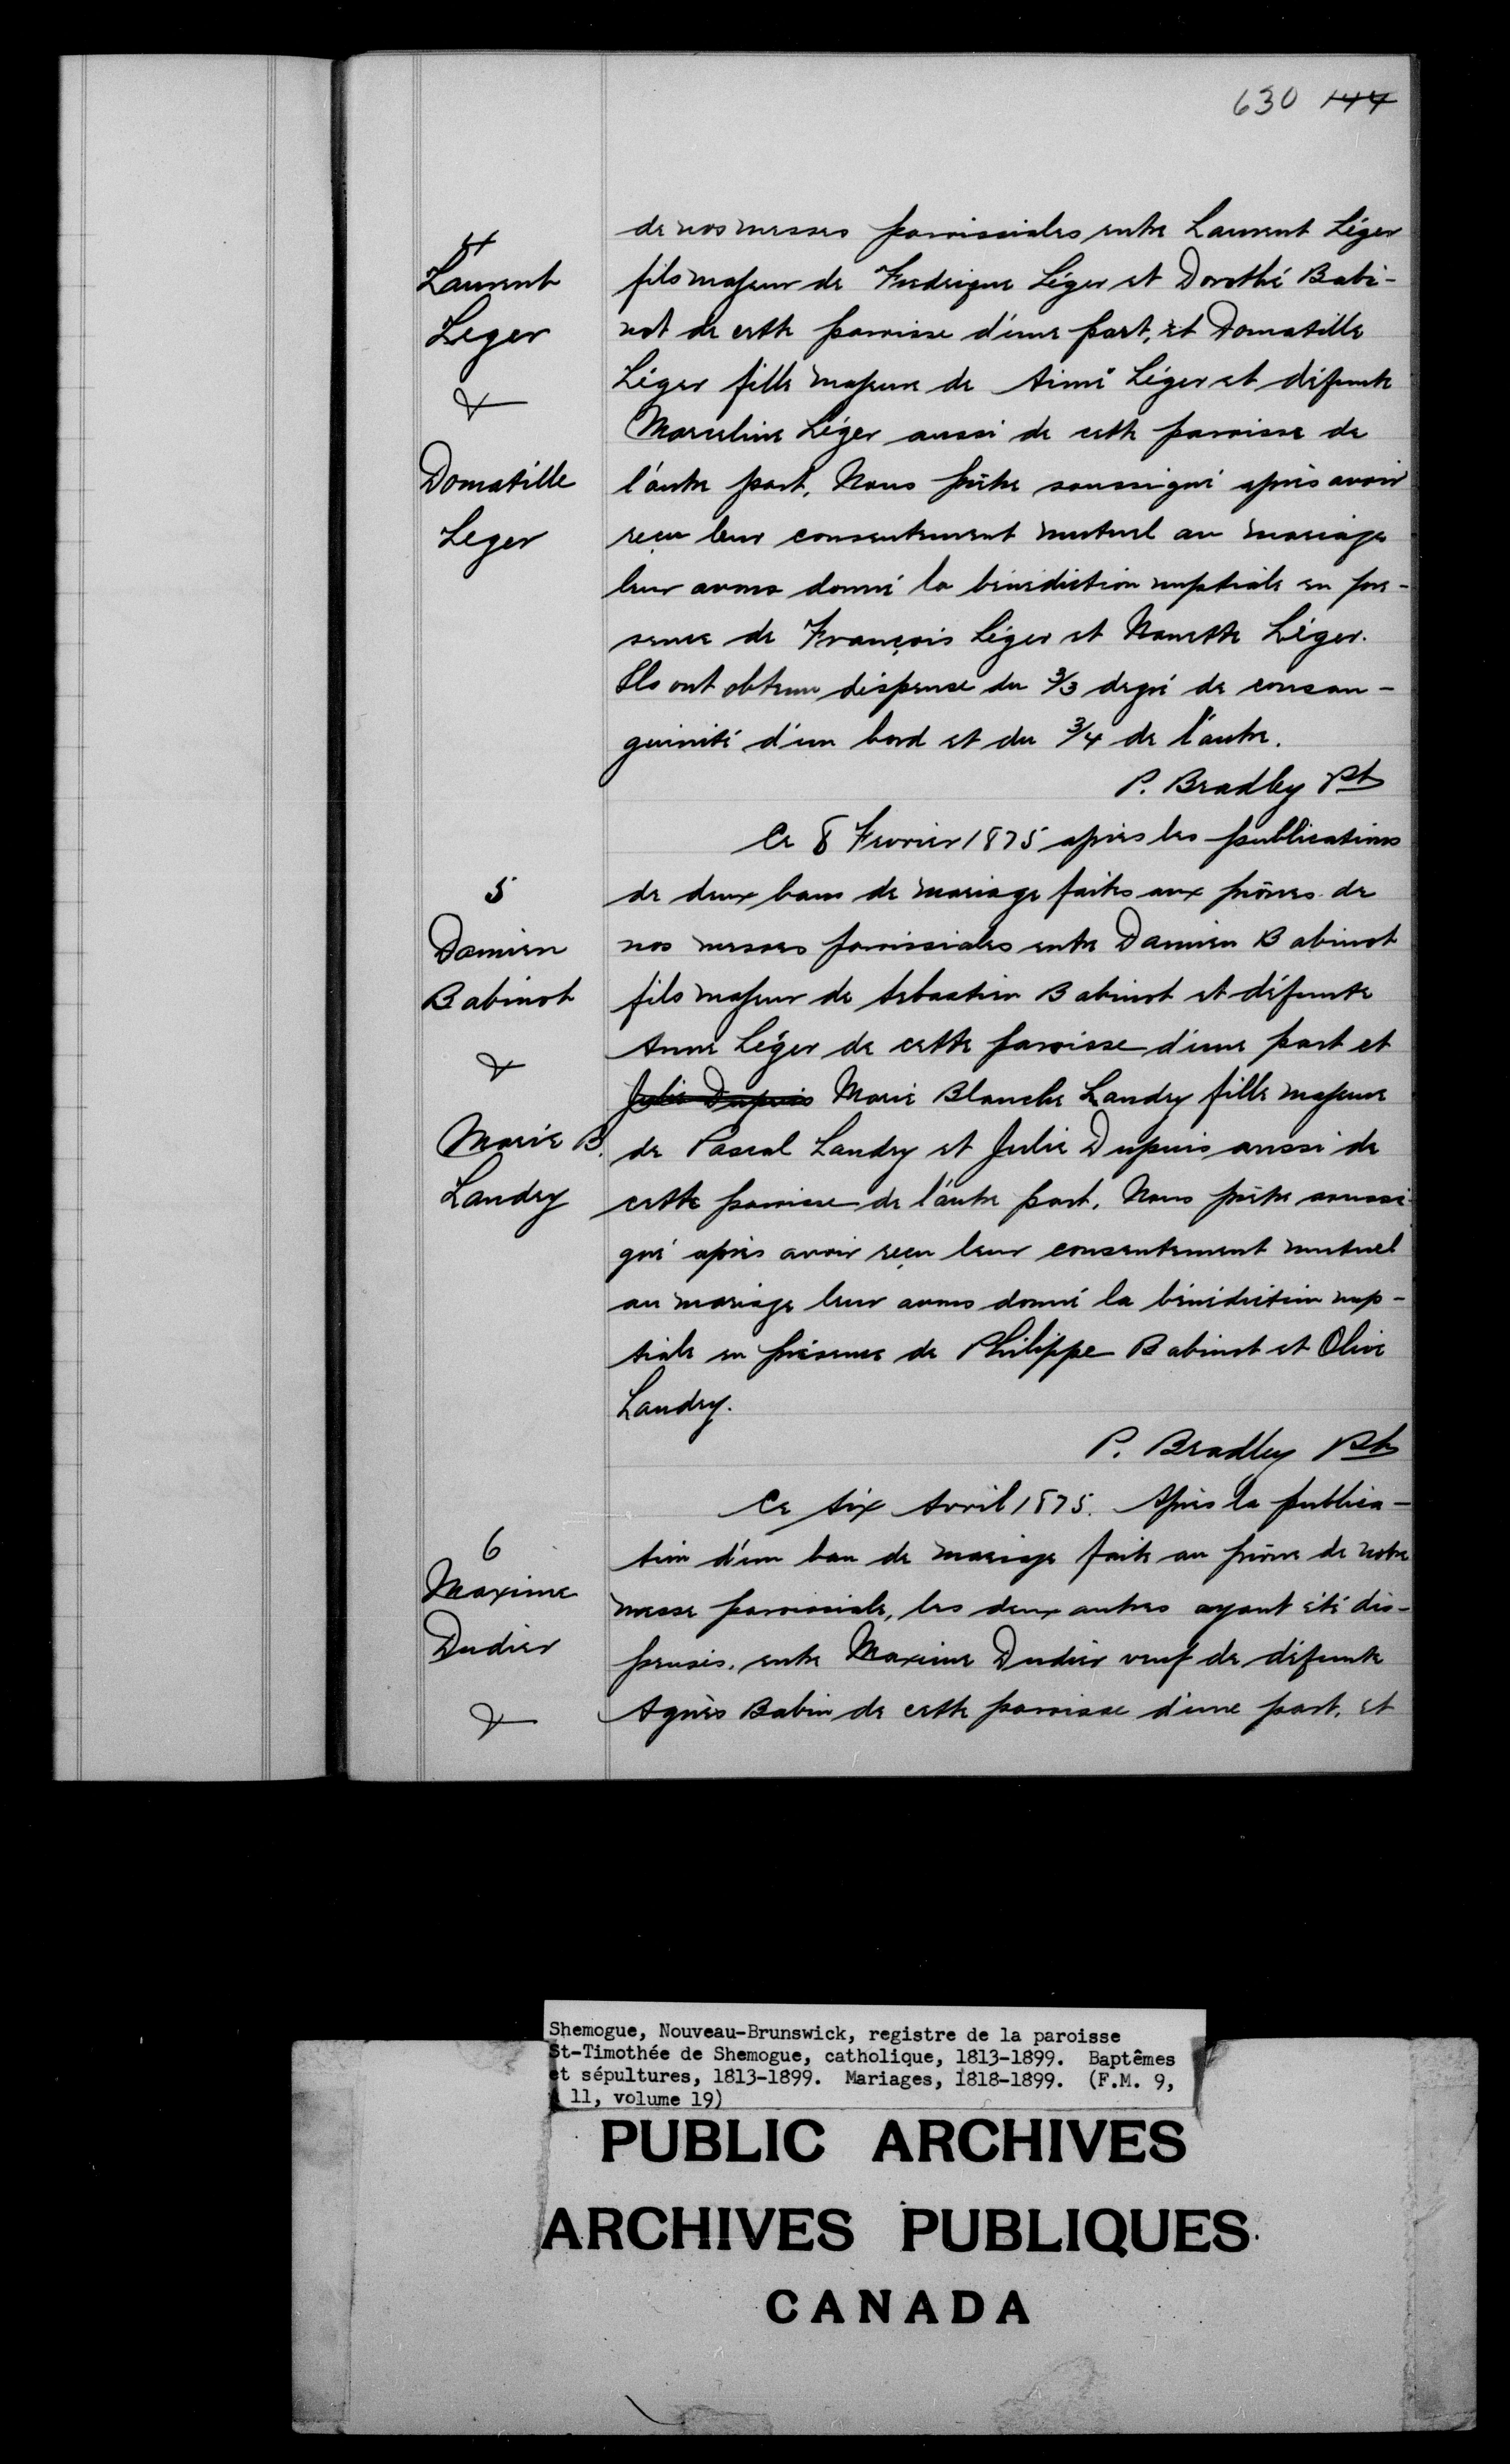 630 144
de nos messes paroissiales entre Laurent Léger
4
Laurent
Leger
&
Domatille
Leger
fils majeur de Frederique Léger et Dorothé Babi-
not de cette paroisse d'une part, et Domatille
Léger fille majeure de Aimé Léger et défunte
Marceline Léger aussi de cette paroisse de
l'autre part, Nous prêtre soussigné après avoir
reçu leur consentement mutuel au mariage
leur avons donné la bénédiction nuptiale en pre-
sence de François Léger et Nanette Léger.
Ils ont obtenu dispense du 3/3 degré de consan-
guinité d'un bord et du 3/4 de l'autre.
P. Bradley Pt
Ce 8 Fevrier 1875 après les publications
5
Damien
Babinot
&
Marie B.
Landry
de deux bans de mariage faites aux prônes de
nos messes paroissiales entre Damien Babinot
fils majeur de Sebastien Babinot et défunte
Anne Léger de cette paroisse d'une part et
Julie Dupuis Marie Blanche Landry fille majeure
de Pascal Landry et Julie Dupuis aussi de
cette paroisse de l'autre part. Nous prêtre soussi-
gné après avoir reçu leur consentement mutuel
au mariage leur avons donné la bénédiction nup-
tiale en présence de Philippe Babinot et Olive
Landry.
P. Bradley Pt
Ce six Avril 1875. Après la publica-
6
Maxime
Dudier
&
tion d'un ban de mariage faite au prône de notre
messe paroissiale, les deux autres ayant été dis-
pensés. entre Maxime Dudier veuf de défunte
Agnès Babin de cette paroisse d'une part. et
Shemogue, Nouveau-Brunswick, registre de la paroisse
St-Timothée de Shemogue, catholique, 1813-1899. Baptêmes
et sépultures, 1813-1899. Mariages, 1818-1899. (F.M. 9,
11, volume 19)
PUBLIC ARCHIVES
ARCHIVES PUBLIQUES
CANADA